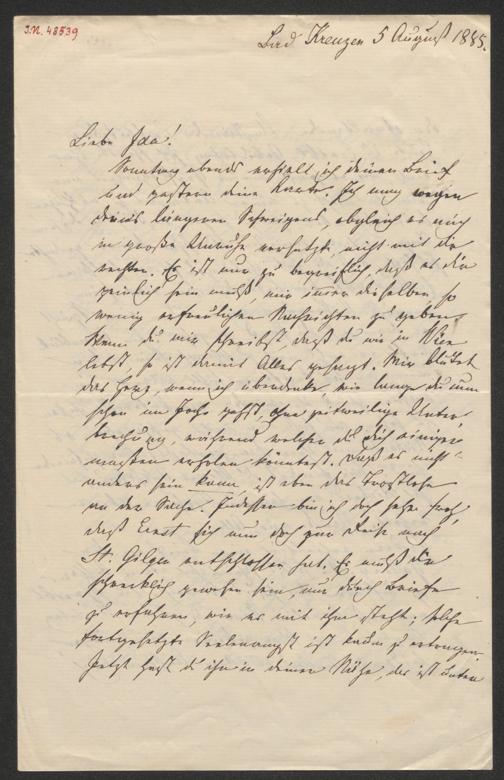 J.N. 48539
Bad Kreuzen 5 August 1885.
Liebe Ida!
Sonntag abends erhielt ich deinen Brief
und gestern deine Karte. Ich mag wegen
deines längeren Schweigens, obgleich es mich
in große Unruhe versetzte, nicht mit dir
rechten. Es ist nur zu begreiflich, daß es dir
peinlich sein muß, mir immer dieselben, so
wenig erfreulichen Nachrichten zu geben.
Wenn du mir schreibst, daß du wie in Wien
lebst, so ist damit Alles gesagt. Mir blutet
das Herz, wenn ich überdenke, wie lange du nun
schon im Joche gehst, ohne zeitweilige Unter-
brechung, während welcher du dich einiger
maßen erholen könntest. Daß es nicht
anders sein kann, ist eben das Trostlose
an der Sache. Indessen bin ich doch sehr froh,
daß Ernst sich nun doch zur Reise nach
St. Gilgen entschlossen hat. Es muß dir
schrecklich gewesen sein, nur durch Briefe
zu erfahren, wie es mit ihm steht; solche
fortgesetzte Seelenangst ist kaum zu ertragen.
Jetzt hast du ihn in deiner Nähe, das ist unten